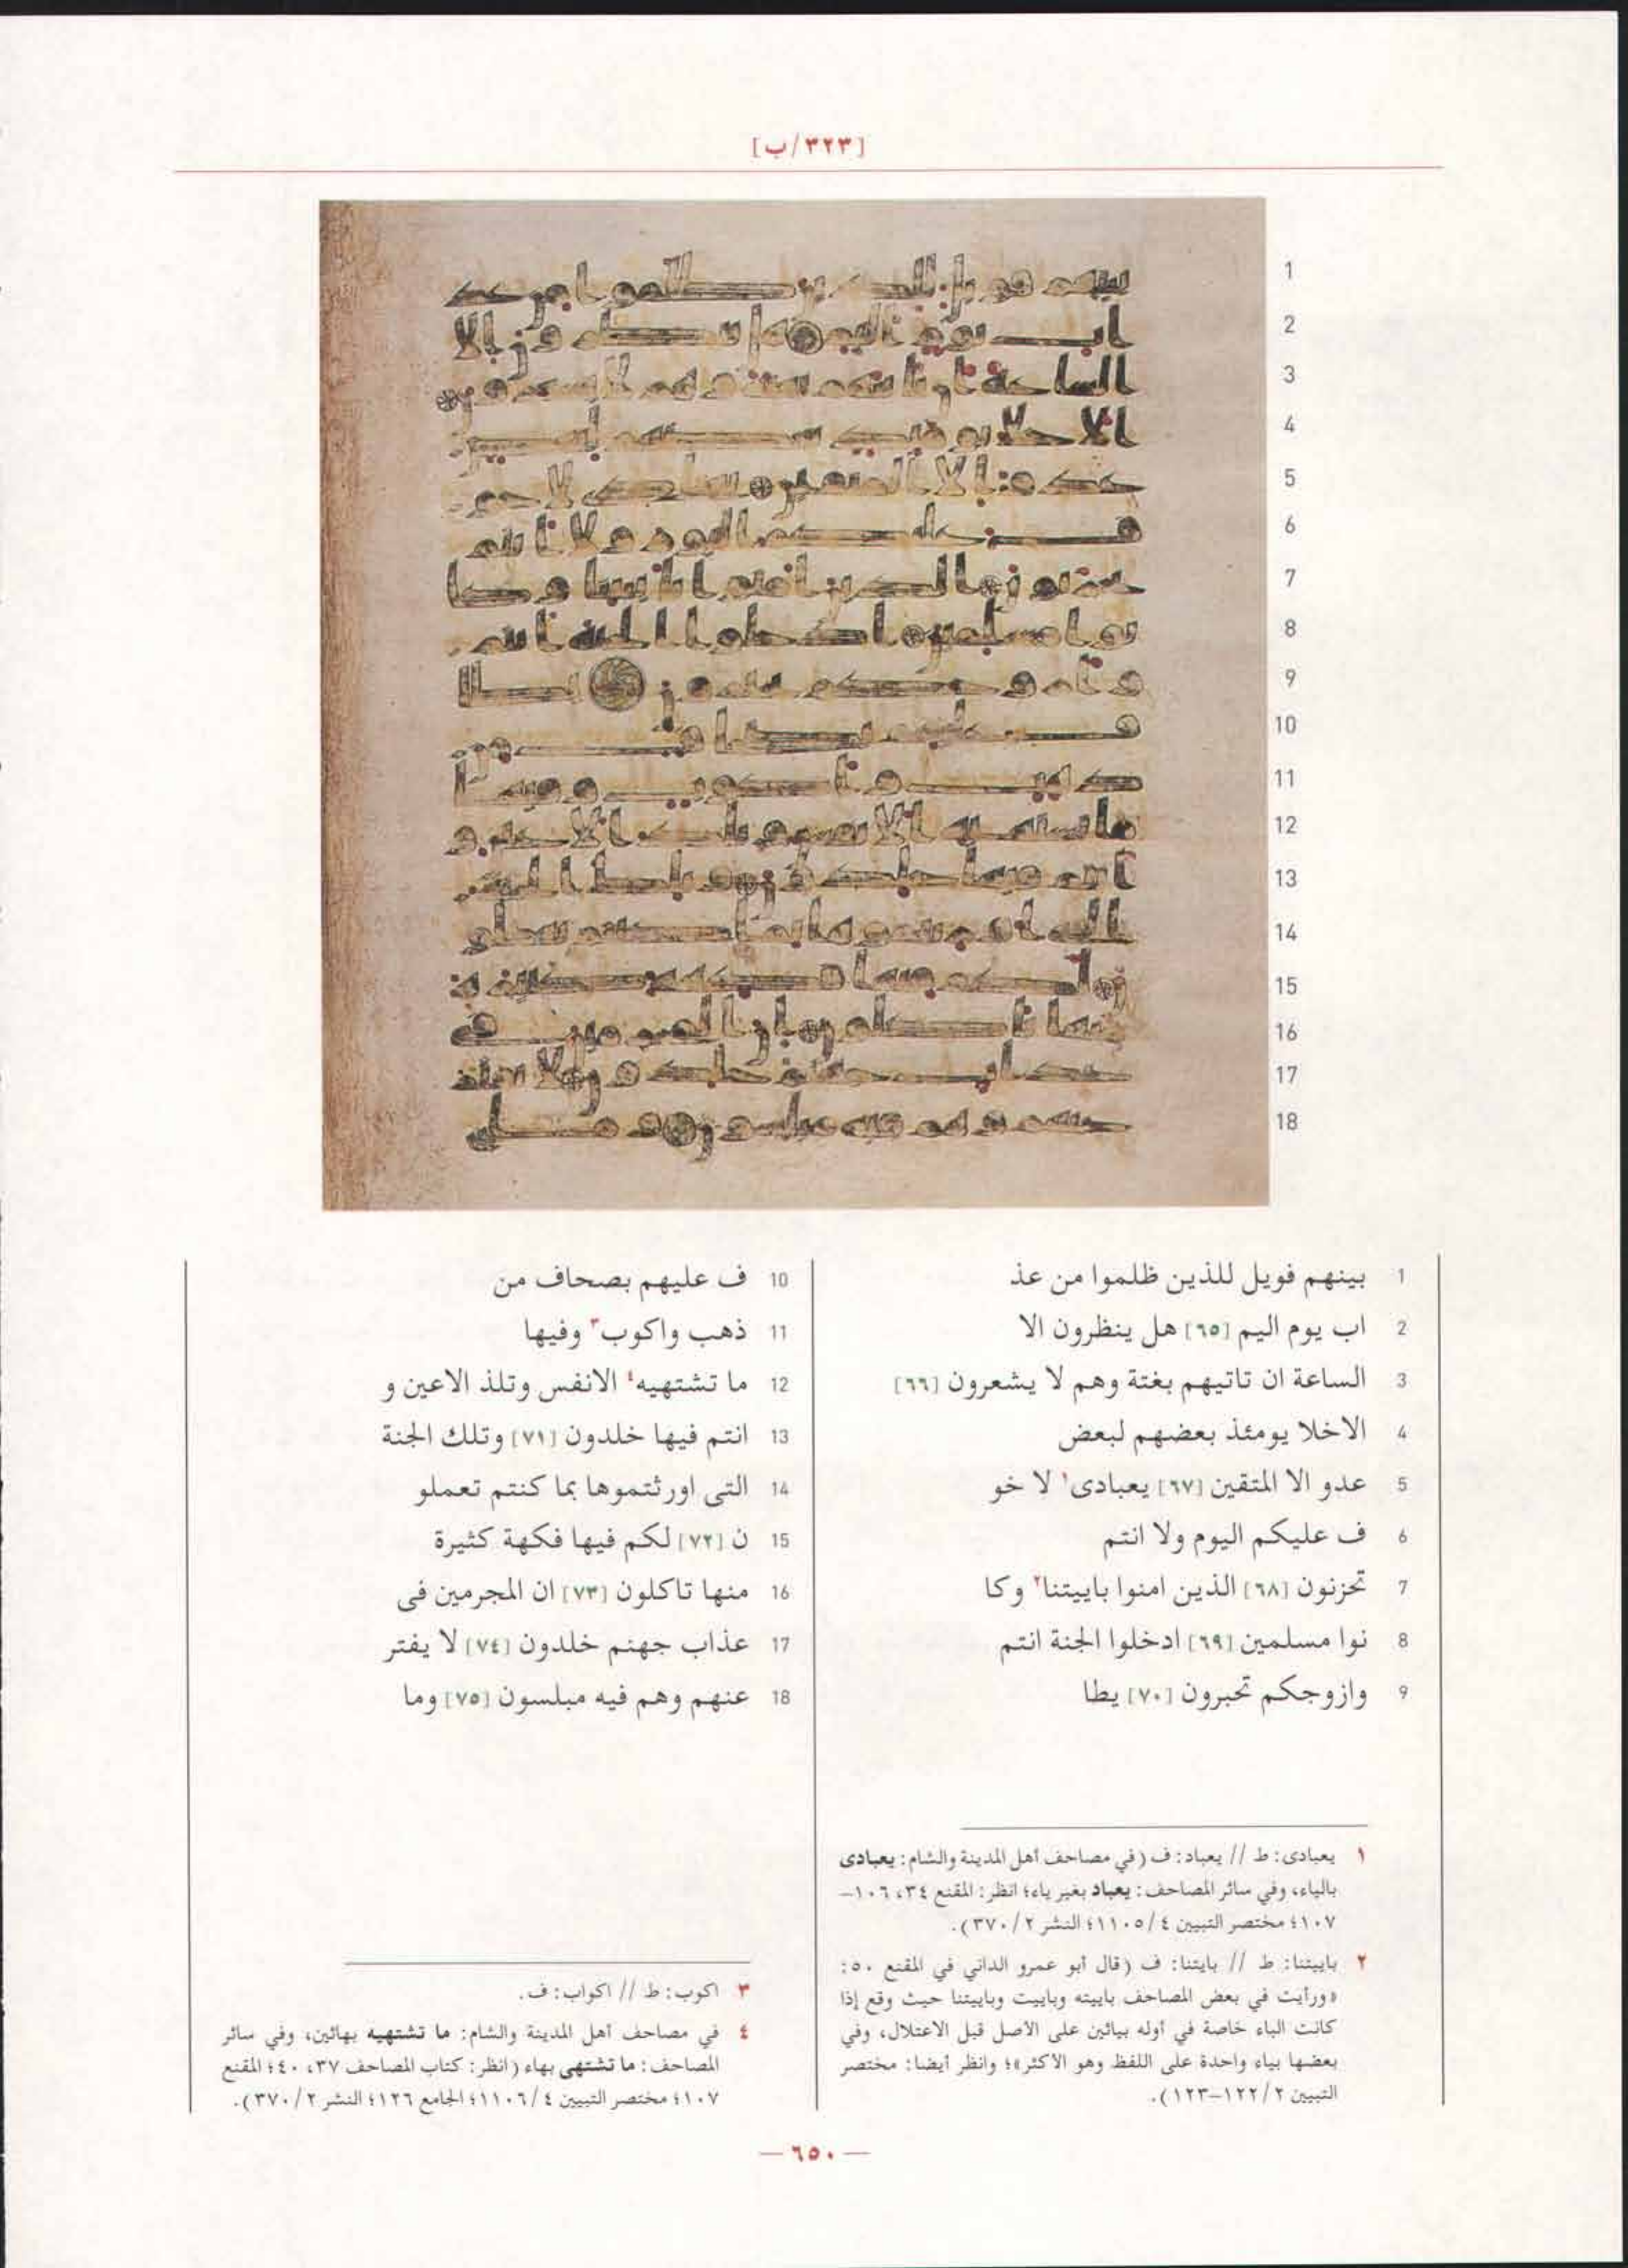 [٣٢٣/ب]
1 بينهم فويل للذين ظلموا من عذ
2 اب يوم اليم [٦٥] هل ينظرون الا
3 الساعة ان تاتيهم بغتة وهم لا يشعرون [٦٦]
4 الاخلا يومئذ بعضهم لبعض
5 عدو الا المتقين [٦٧] يعبادى١ لا خو
6 ف عليكم اليوم ولا انتم
7 تحزنون [٦٨] الذين امنوا باييتنا٢ وكا
8 نوا مسلمين [٦٩] ادخلوا الجنة انتم
9 وازوجكم تحبرون [٧٠] يطا
10 ف عليهم بصحاف من
11 ذهب واكوب٣ وفيها
12 ما تشتهيه٤ الانفس وتلذ الاعين و
13 انتم فيها خلدون [٧١] وتلك الجنة
14 التى اورثتموها بما كنتم تعملو
15 ن [٧٢] لكم فيها فكهة كثيرة
16 منها تاكلون [٧٣] ان المجرمين فى
17 عذاب جهنم خلدون [٧٤] لا يفتر
18 عنهم وهم فيه مبلسون [٧٥] وما
١ يعبادى: ط // يعباد: ف (في مصاحف أهل المدينة والشام: يعبادى
بالياء، وفي سائر المصاحف: يعباد بغير ياء؛ انظر: المقنع ٣٤، ١٠٦–
١٠٧؛ مختصر التبيين ٤/١١٠٥؛ النشر ٢/٣٧٠).
٢ باييتنا: ط // بايتنا: ف (قال أبو عمرو الداني في المقنع ٥٠:
«ورأيت في بعض المصاحف باييته وباييت وباييتنا حيث وقع إذا
كانت الباء خاصة في أوله بيائين على الأصل قبل الاعتلال، وفي
بعضها بياء واحدة على اللفظ وهو الأكثر»؛ وانظر أيضا: مختصر
التبيين ٢/١٢٢–١٢٣).
٣ اكوب: ط // اكواب: ف.
٤ في مصاحف أهل المدينة والشام: ما تشتهيه بهائين، وفي سائر
المصاحف: ما تشتهى بهاء (انظر: كتاب المصاحف ٣٧، ٤٠؛ المقنع
١٠٧؛ مختصر التبيين ٤/١١٠٦؛ الجامع ١٢٦؛ النشر ٢/٣٧٠).
— ٦٥٠ —